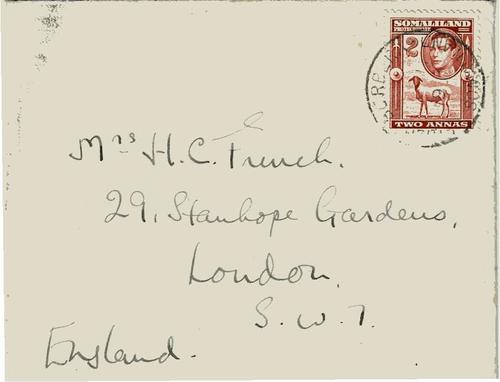 SOMALILAND
PROTECTORATE
2 A
TWO ANNAS
Mrs H.C. French.
29, Stanhope Gardens,
London,
S.W.7.
England.